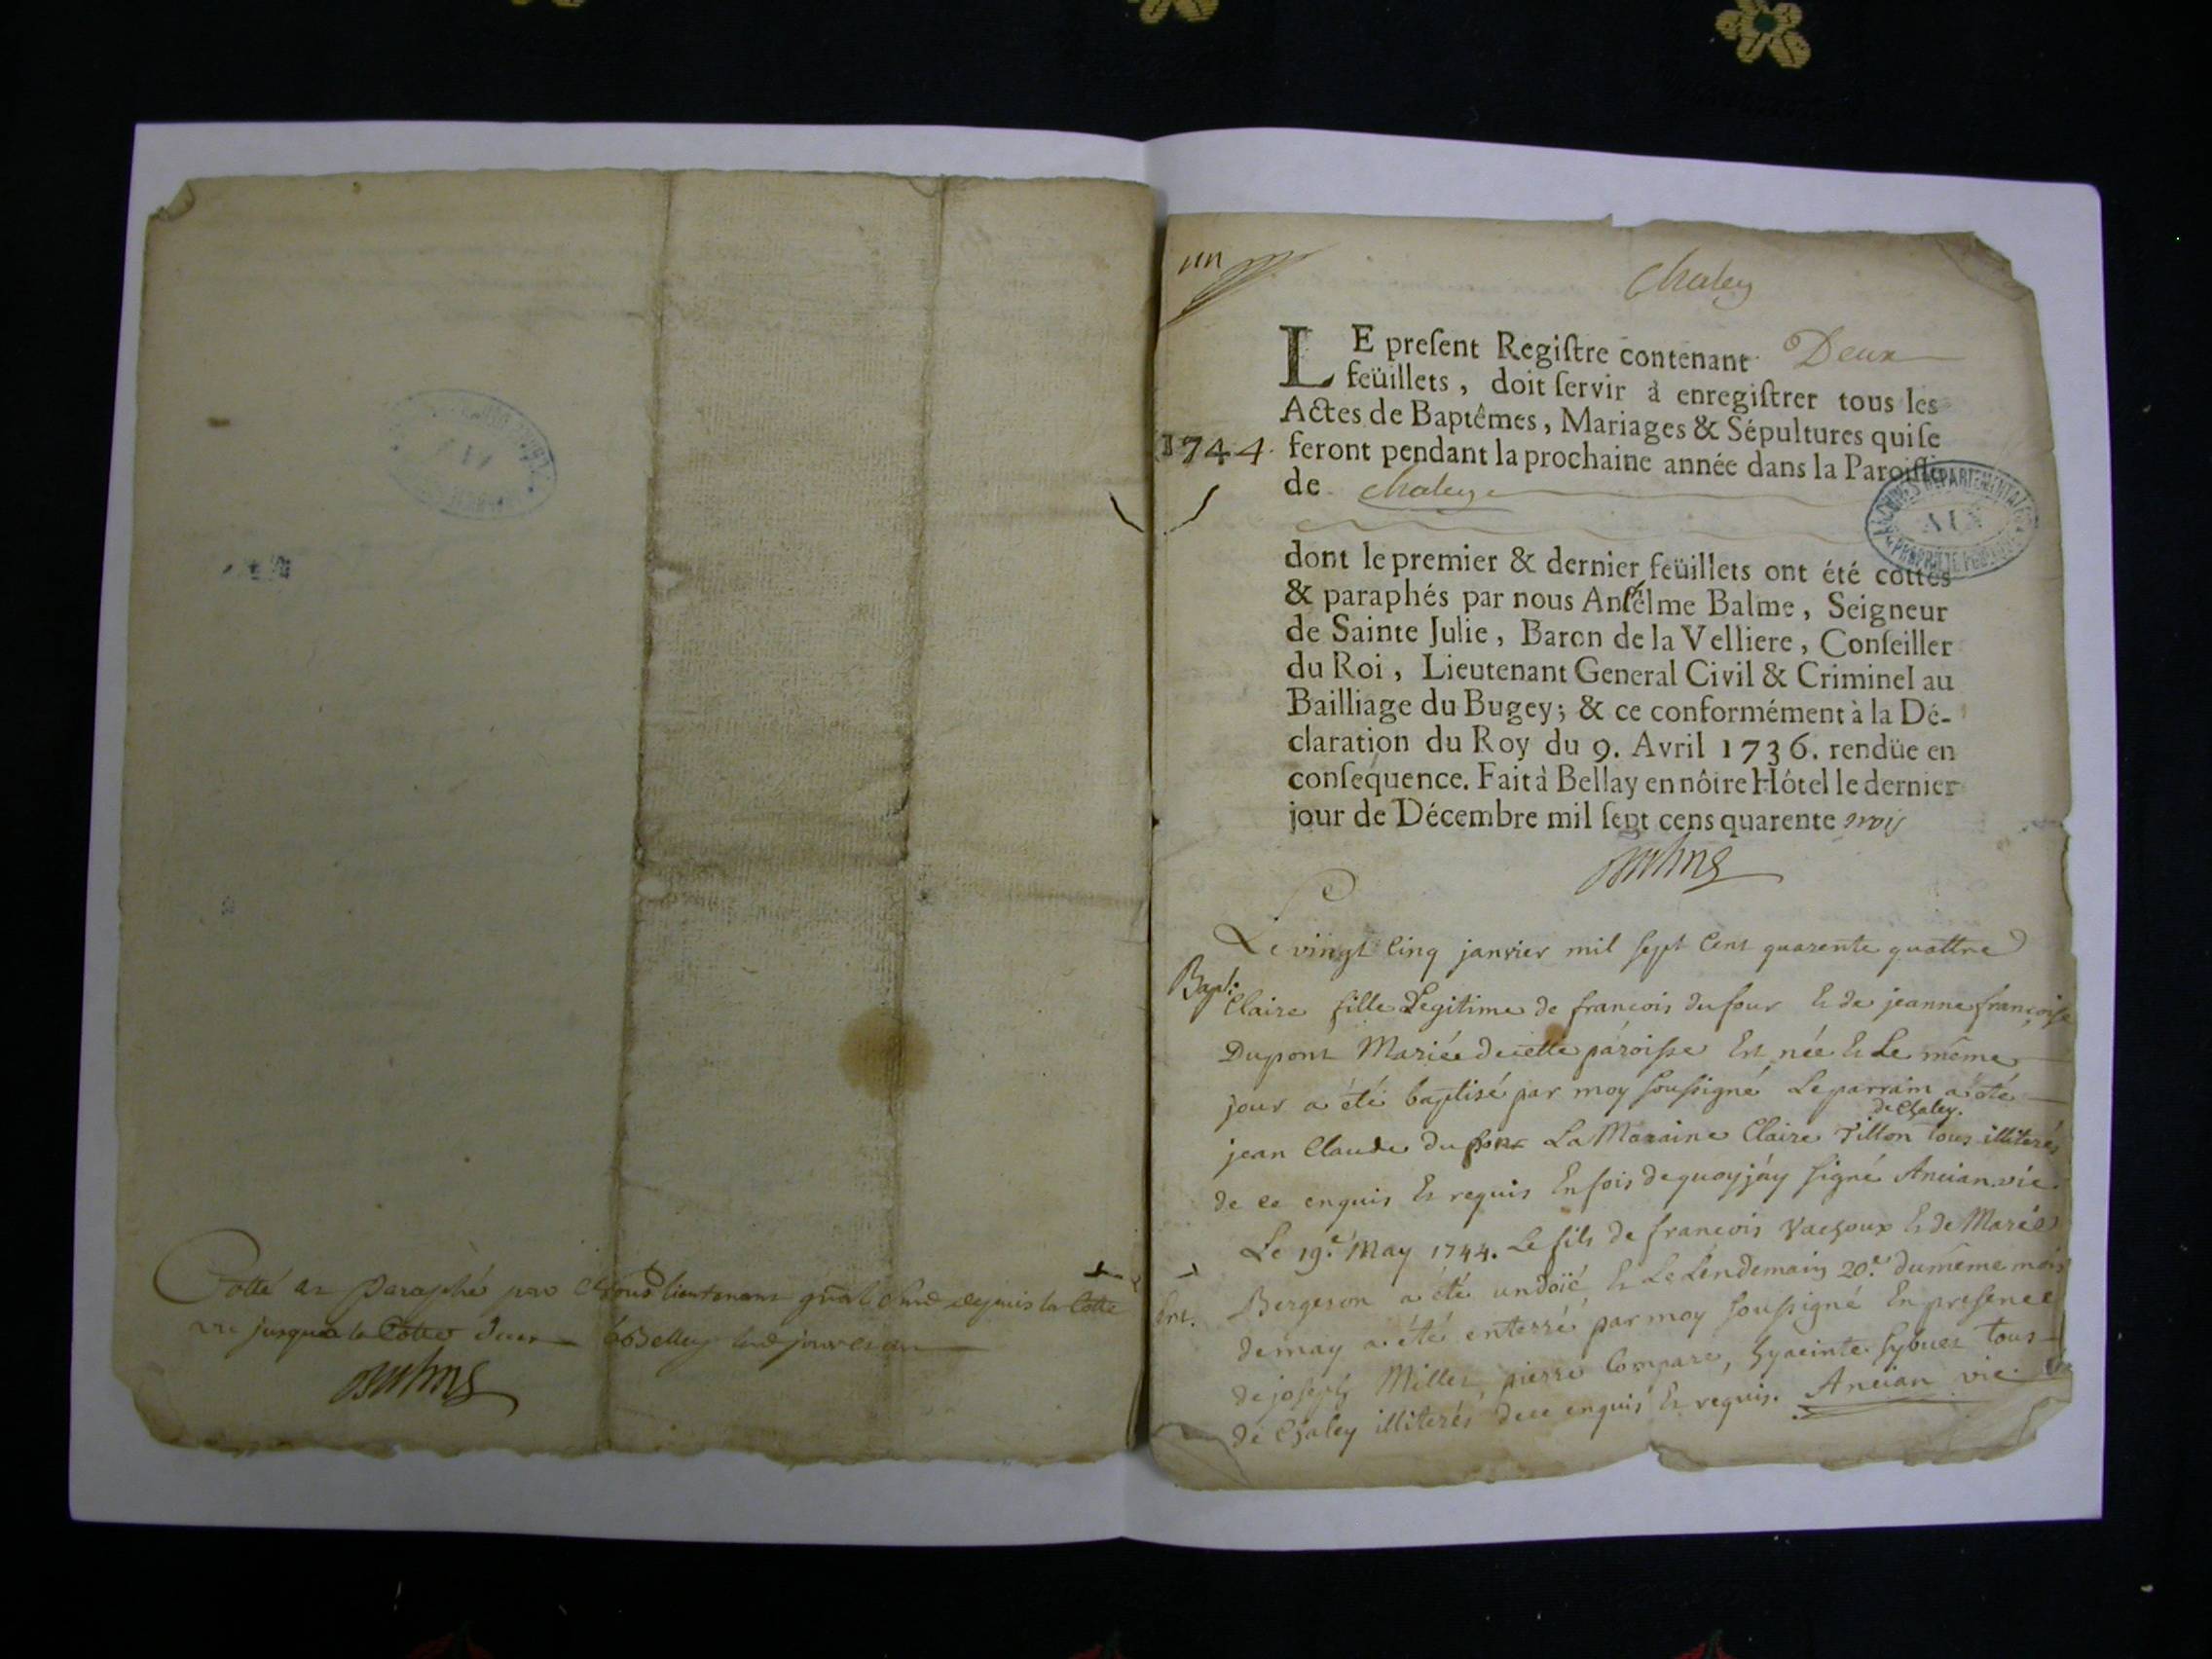 Cotté et Paraphé par Nous lieutenant gñal Susd depuis la Cotte
un jusqu'a la Cotte deux a Belley led jour et an
Balme
un
Chaley
LE preſent Regiſtre contenant Deux
feüillets, doit ſervir à enregiſtrer tous les
Actes de Baptêmes, Mariages & Sépultures qui ſe
1744. feront pendant la prochaine année dans la Paroiſſe
de Chaley
ARCHIVES DEPARTEMENTALES
AIN
PROPRIETE PUBLIQUE
dont le premier & dernier feüillets ont été cottés
& paraphés par nous Anſélme Balme, Seigneur
de Sainte Julie, Baron de la Velliere, Conſeiller
du Roi, Lieutenant General Civil & Criminel au
Bailliage du Bugey; & ce conformément à la Dé-
claration du Roy du 9. Avril 1736. rendüe en
conſequence. Fait à Bellay en nôtre Hôtel le dernier
jour de Décembre mil ſept cens quarente trois
Balme
Le vingt Cinq janvier mil sept Cent quarente quattre
Bapt:
Claire fille Legitime de francois dufour Et de jeanne françoise
Dupont Mariée decette pároisse Est née Et Le même
jour a été baptisé par moy soussigné Le parrain a été
de Chaley.
jean Claude dupont La Maraine Claire Tillon tous illiterés
de ce enquis Et requis En fois dequoy j'áy signé Ancian vic.
Le 19.e May 1744. Le fils de francois Vachoux Et de Marie
Bergeron a été undoïé Et Le Lendemain 20.e du même mois
Ent.
de may a été enterré par moy soussigné En presence
de joseph Millet, pierre Compare, hyacinte Sybuet tous
de Chaley illiterés de ce enquis Et requis. Ancian vic.